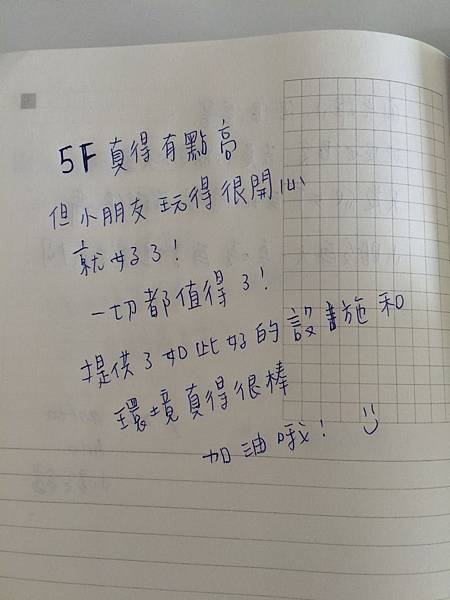 5F真得有點高
但小朋友玩得很開心
就好了!
一切都值得了!
提供了如此好的設施和
環境真得很棒
加油哦! :)